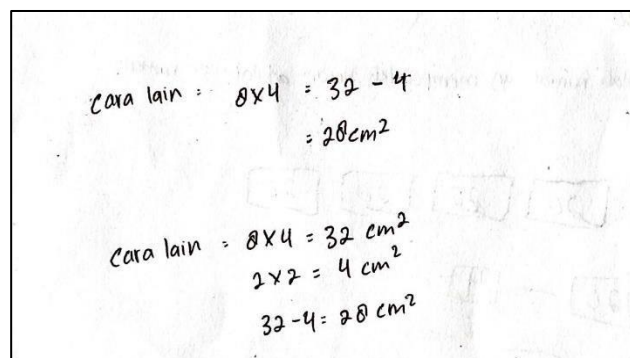 Cara lain = 8x4 = 32 - 4
= 28 cm²
Cara lain = 8x4 = 32 cm²
2x2 = 4 cm²
32-4 = 28 cm²